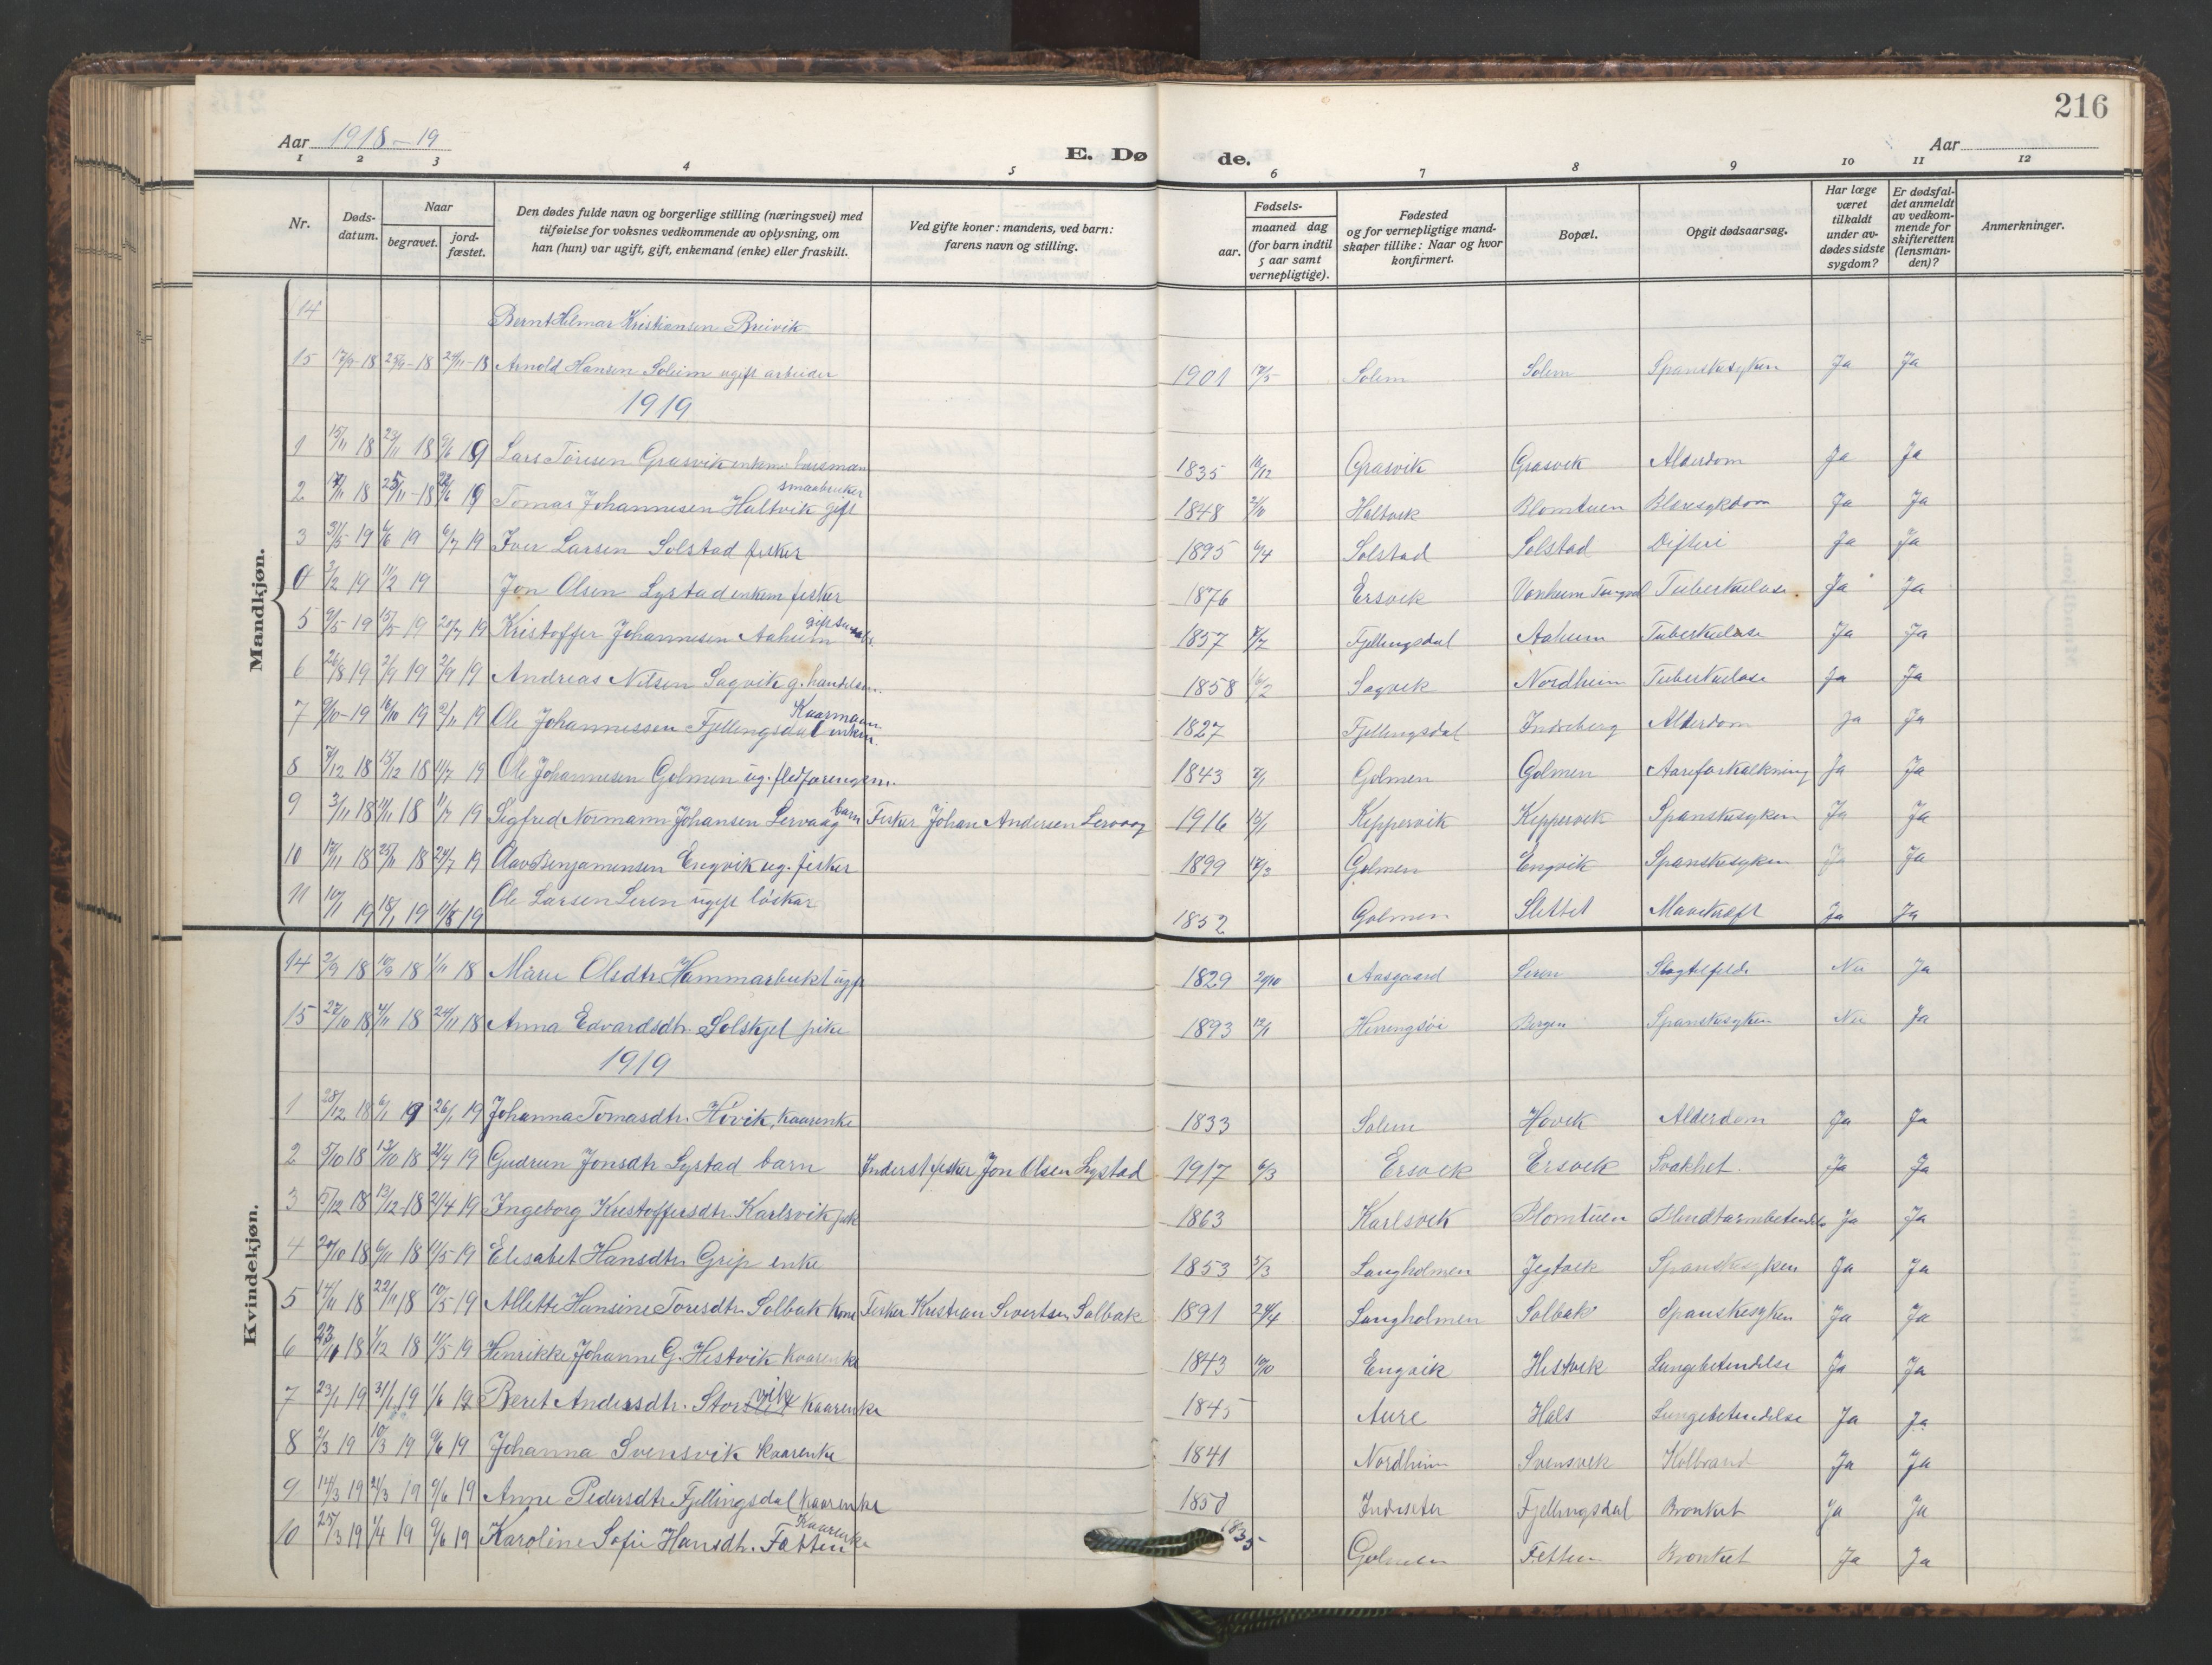 216
Aar 1918-19
E. Døde.
Aar
1 2 3 4 5 6 7 8 9 10 11 12
Nr. Døds-datum. Naar begravet. jord-fæstet. Den dødes fulde navn og borgerlige stilling (næringsvei) med tilføielse for voksnes vedkommende av oplysning, om han (hun) var ugift, gift, enkemand (enke) eller fraskilt. Ved gifte koner: mandens, ved barn: farens navn og stilling. Fødsels- aar. maaned dag (for barn indtil 5 aar samt vernepligtige). Fødested og for vernepligtige mand-skaper tillike: Naar og hvor konfirmert. Bopæl. Opgit dødsaarsag. Har læge været tilkaldt under av-dødes sidste sygdom? Er dødsfal-det anmeldt av vedkom-mende for skifteretten (lensman-den)? Anmerkninger.
Mandkjøn.
14 Bernt Hilmar Kristiansen Breivik
15 25/9-18 24/11-18 Arnold Hansen Soleim ugift arbeider 1901 17/5 Solem Solem Spanskesyken Ja Ja
1919
1 15/11 18 23/11 18 9/6 19 Lars Toresen Grasvik enkem. husman 1835 10/12 Grasvik Grasvik Alderdom Ja Ja
2 17/11 18 25/11-18 22/6 19 Tomas Johannesen Haltvik gift smaabruker 1848 2/10 Haltvik Blomtuen Blæresykdom Ja Ja
3 31/5-19 6/6 19 6/7 19 Iver Larsen Solstad fisker 1895 6/4 Solstad Solstad Difteri Ja Ja
4 3/2 19 11/2 19 Jon Olsen Lystad enkem fisker 1876 Ersvik Vonheim Tuberkulose. Ja Ja
5 9/5-19 15/5 19 20/7 19 Kristoffer Johannesen Aaheim gift 1857 8/7 Fjellingsdal Aaheim Tuberkulose Ja Ja
6 26/8 19 2/9 19 2/9 19 Andreas Nilsen Sagvik g. handelsm. 1858 6/2 Sagvik Nordheim Tuberkulose Ja Ja
7 9/10-19 16/10 19 2/11 19 Ole Johannessen Fjellingsdal Kaarmann enkem. 1827 Fjellingsdal Indreberg Alderdom Ja Ja
8 7/12 18 15/12 18 11/7 19 Ole Johannesen Golmen ug. fledføringem. 1843 7/1 Golmen Golmen Aareforkalkning Ja Ja
9 3/11 18 11/11 18 11/7 19 Sigfred Normann Johansen Lervaag barn Fisker Johan Andersen Lervaag 1916 15/1 Kippervik Kippervik Spanskesyken Ja Ja
10 17/11 18 25/11 18 24/7 19 Olav Benjamensen Engvik ug. fisker 1899 17/3 Golmen Engvik Spanskesyken Ja Ja
11 19 18/1 19 11/8 19 Ole Larsen Leren ugift løskar 1852 Golmen Slettet Mavekræft Ja Ja
Kvindekjøn.
14 2/9 18 10/9 18 1/11 18 Marie Olsdtr. Hammarbukt ugift 1829 20/10 Aasgaard Leren Slagtilfelde Nei Ja
15 27/10 18 4/11 18 24/11 18 Anna Edvardsdtr. Solskjel pike 1893 12/1 Henningsøi Bergen Spanskesyken Nei Ja
1919
1 28/12 18 6/1 19 26/1 19 Johanna Tomasdtr. Hövik, kaarenke 1833 Solem Hovik Alderdom Ja Ja
2 5/10 18 13/10 18 21/4 19 Gudrun Jonsdtr Lystad barn Inderst fisker Jon Olsen Lystad 1917 6/3 Ersvik Ersvik Svakhet. Ja Ja
3 5/12 18 13/12-18 21/4 19 Ingeborg Kristoffersdtr. Karlsvik pike 1863 Karlsvik Blomtuen Blindtarmbetendelse Ja Ja
4 29/10 18 6/11 18 11/5-19 Elisabet Hansdtr. Grip enke 1853 5/3 Langholmen Jegtvik Spanskesyken Ja Ja
5 14/11 18 22/11 18 10/5 19 Allette Hansine Toresdtr. Solbak kone Fisker Kristian Sivertsen Solbak 1891 24/4 Langholmen Solbak Spanskesyken Ja Ja
6 23/11 18 1/12 18 11/5 19 Henrikke Johanne G. Hestvik kaarenke 1843 10/10 Engvik Hestvik Lungebetendelse Ja Ja
7 23/1 19 31/1 19 1/6 19 Beret Andersdtr. Storvik kaarenke 1845 Aure Hals Lungebetendelse Ja Ja
8 2/3 19 10/3 19 9/6 19 Johanna Svensvik kaarenke 1841 Nordheim Svensvik Kolbrand Ja Ja
9 14/3 19 21/3 19 9/6 19 Anne Pedersdtr Fjellingsdal kaarenke 1850 Indreseter Fjellingsdal Bronkit Ja Ja
10 25/3 19 1/4 19 9/6 19 Karoline Sofie Hansdtr. Fætten Kaarenke 1835 Golmen Fetten Bronkit Ja Ja